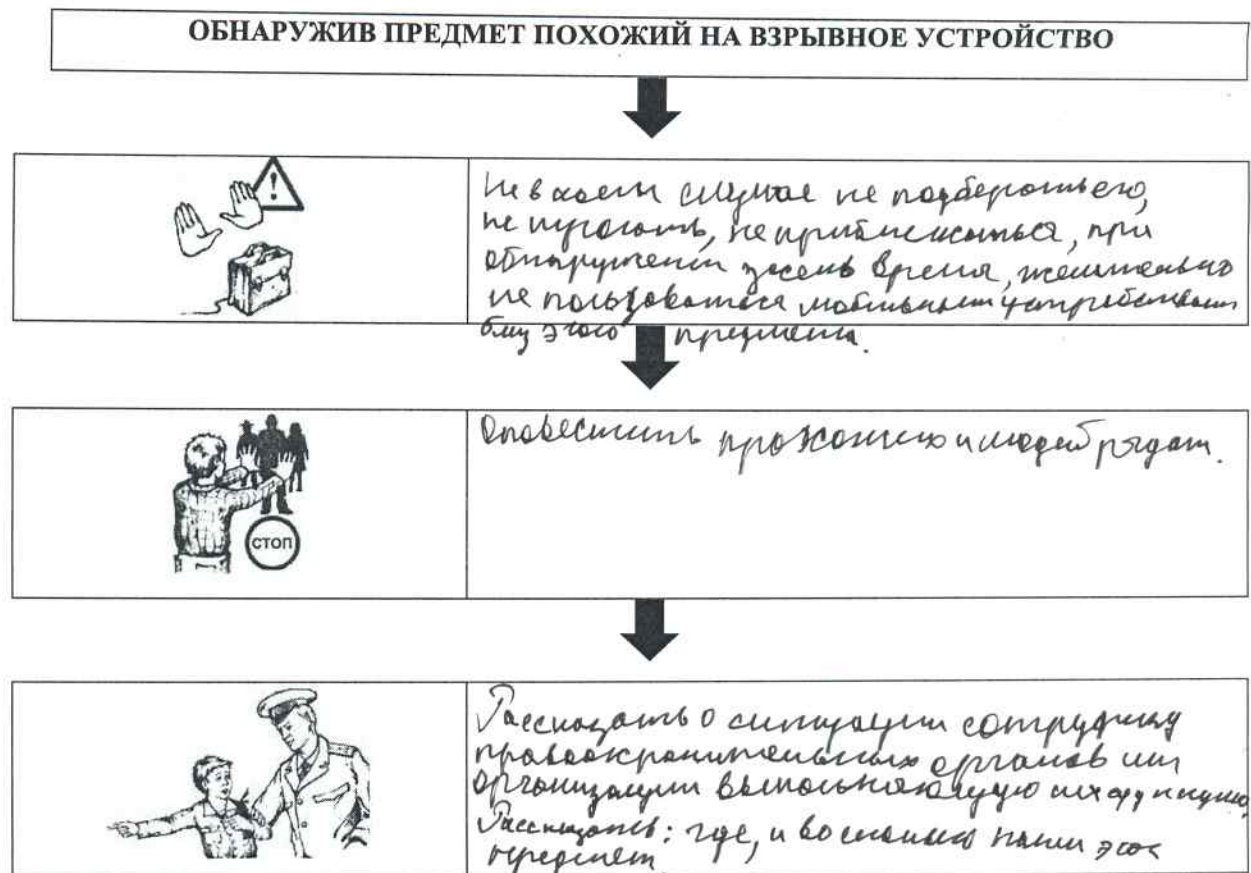 ОБНАРУЖИВ ПРЕДМЕТ ПОХОЖИЙ НА ВЗРЫВНОЕ УСТРОЙСТВО
Не в коем случае не подберать его,
не пугать, не приближаться, при
обнаружении время, желательно
не пользоваться мобильными устройствами
этого предмета.
СТОП
Оповестить прохожих и людей рядом.
Рассказать о ситуации сотруднику
правоохранительных органов или
организации выполняющую их функцию
Рассказать: где, и во сколько нашли этот
предмет